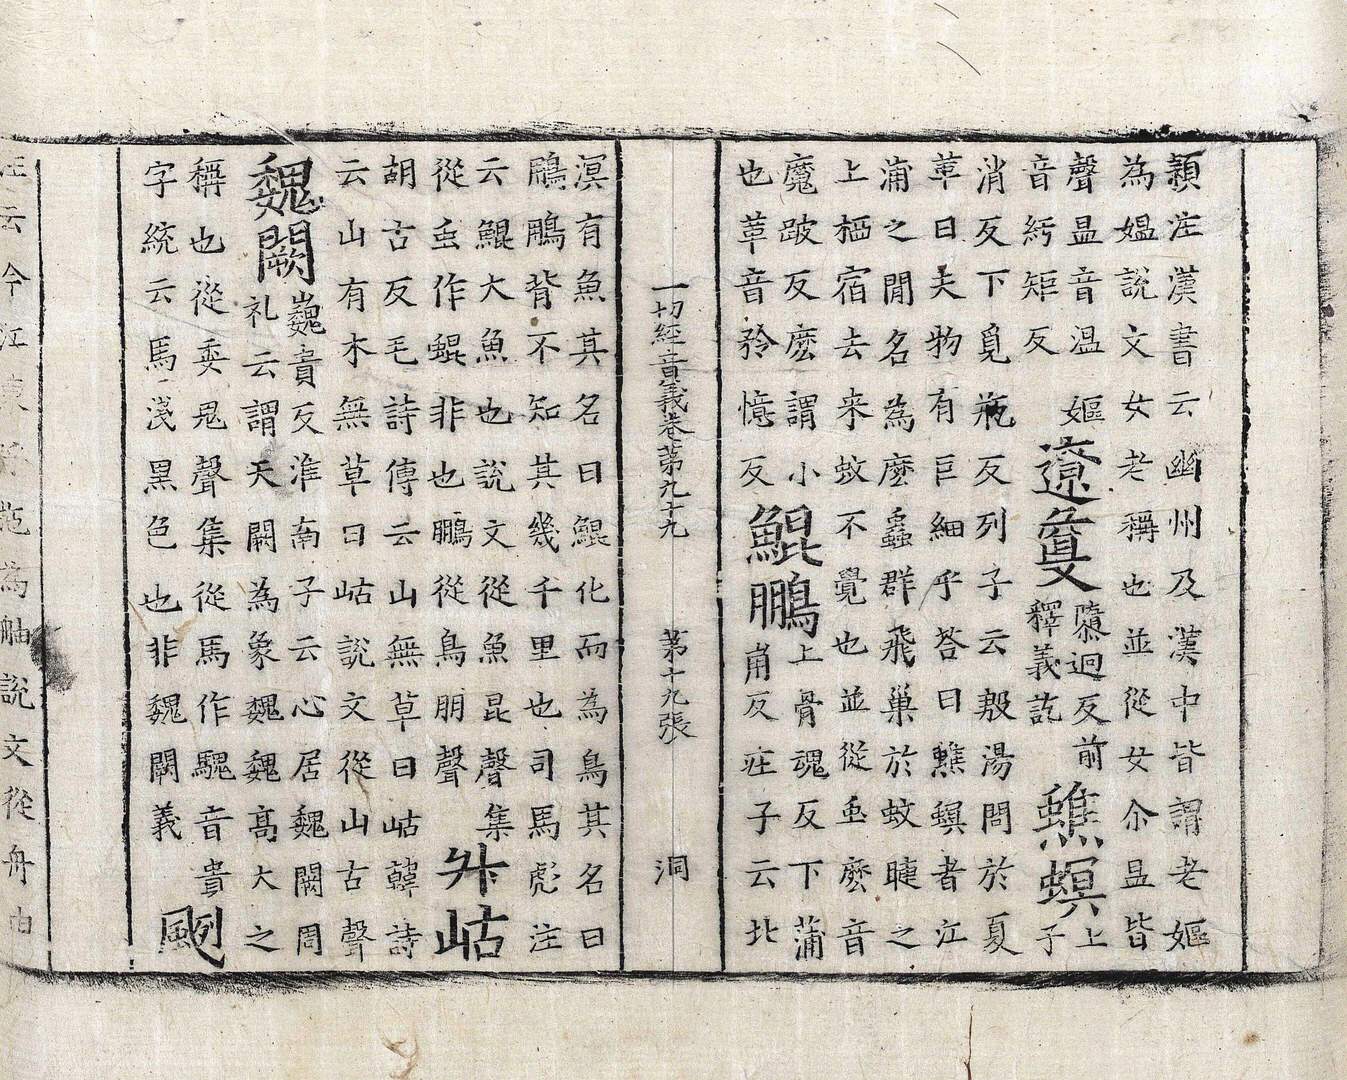 顈注漢書云幽州及漢中皆謂老嫗
為媼說文女老稱也並從女尒昷皆
聲昷音溫 嫗
音紆矩反
遼敻
隳迥反前
釋義訖
蟭螟
上
子
消反下覓瓶反列子云殷湯問於夏
革曰夫物有巨細乎答曰蟭螟者江
浦之閒名為麼蟲群飛巢於蚊睫之
上栖宿去来蚊不覺也並從虫麼音
魔跛反麼謂小
也革音矜憶反
鯤鵬
上骨魂反下蒲
崩反莊子云北
一切經音義卷第九十九 第十九張 洞
溟有魚其名曰鯤化而為鳥其名曰
鵬鵬背不知其幾千里也司馬彪注
云鯤大魚也說文從魚昆聲集
從虫作蜫非也鵬從鳥朋聲
屺岵
胡古反毛詩傳云山無草曰岵韓詩
云山有木無草曰岵說文從山古聲
魏闕
巍貴反淮南子云心居魏闕周
礼云謂天闕為象魏魏高大之
稱也從委鬼聲集從馬作騩音貴
字統云馬淺黑色也非魏闕義
颲
注云今江東呼瓲為舳說文從舟由